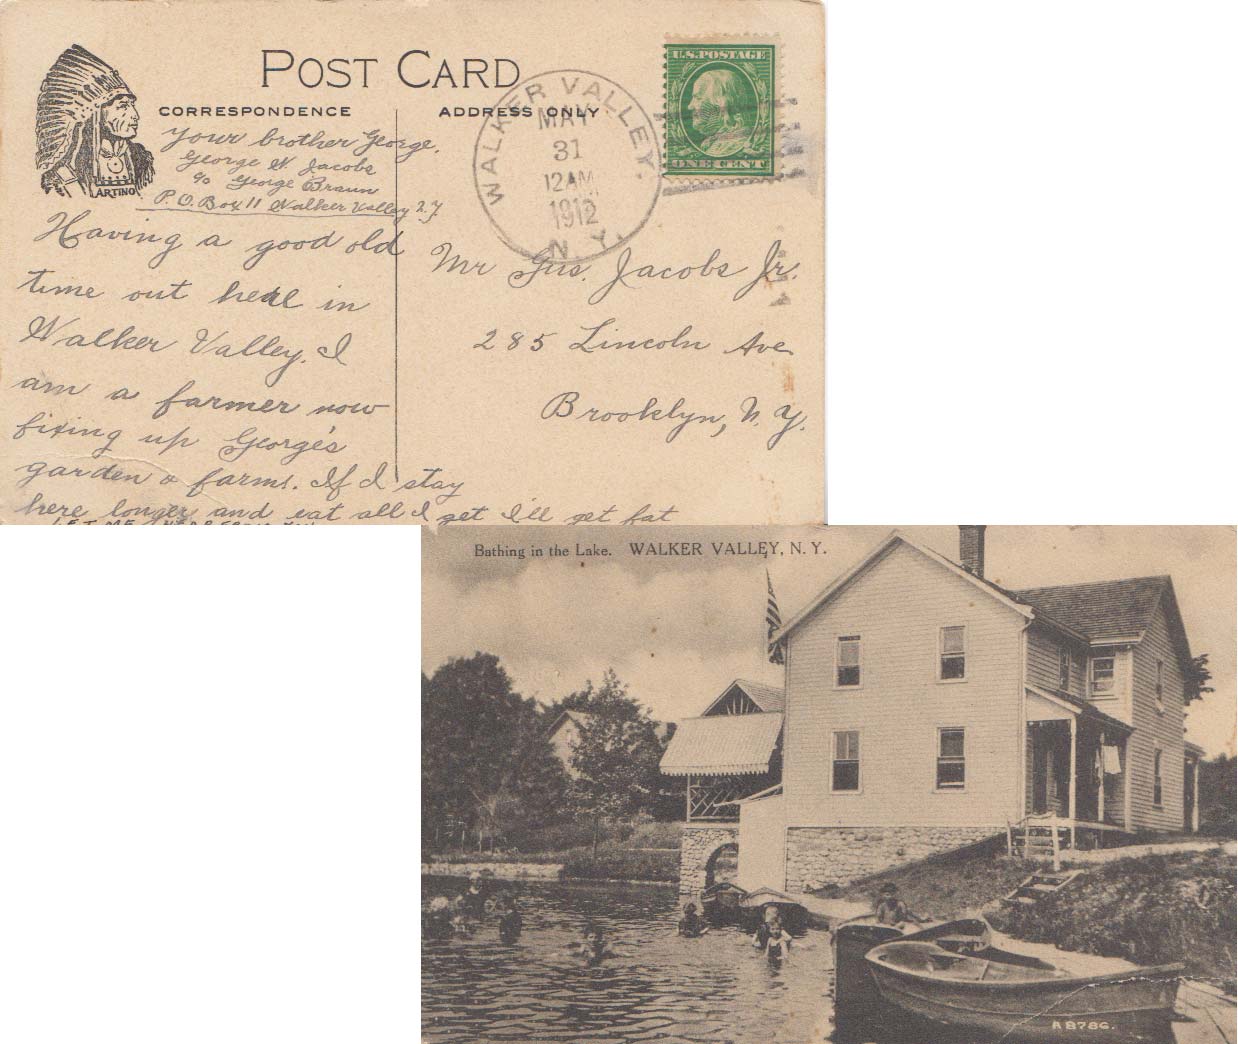 POST CARD
CORRESPONDENCE
ADDRESS ONLY
ARTINO
Your brother George.
George W Jacobs
c/o George Braun
P.O. Box 11 Walker Valley N.Y.
Having a good old
time out here in
Walker Valley. I
am a farmer now
fixing up George's
garden & farms. If I stay
here longer and eat all I get I'll get fat
LET ME HEAR FROM YOU
WALKER VALLEY,
MAY
31
12AM
1912
N.Y.
U.S.POSTAGE
ONE CENT
Mr Gus. Jacobs Jr.
285 Lincoln Ave
Brooklyn, N.Y.
Bathing in the Lake. WALKER VALLEY, N.Y.
A8786.